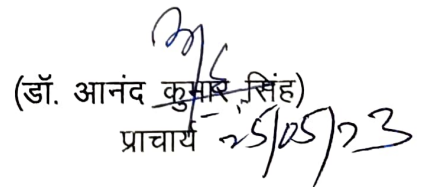 (डॉ. आनंद कुमार सिंह)
प्राचार्य 25/05/23